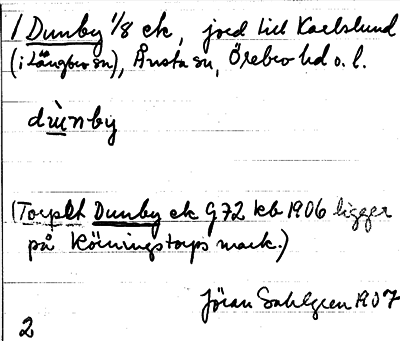 1 Dunby 1/8 ek, jord till Karlslund
(i Längbro sn), Ånsta sn, Örebro hd o. l.
dùnby
(Torpet Dunby ek G 72 kb 1906 ligger
på Körningstorps mark.)
Jöran Sahlgren 1907
2